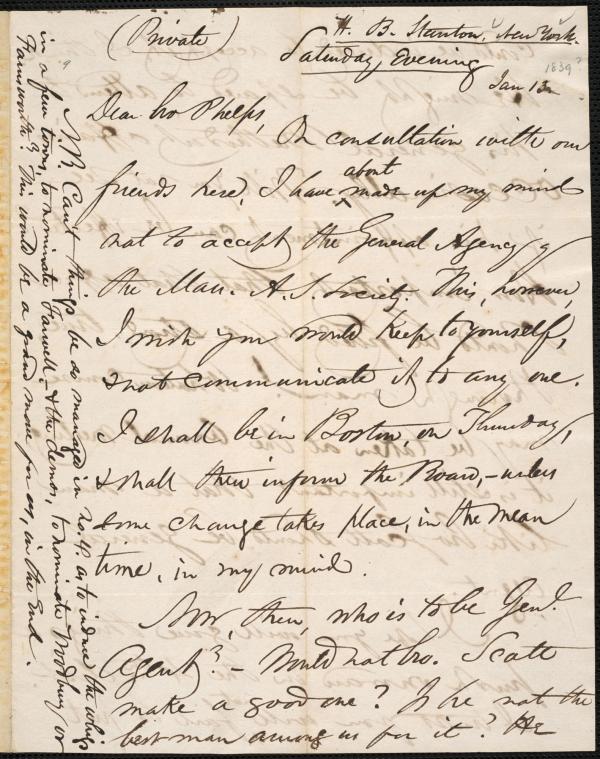 (Private)
H. B. Stanton, New York.
Saturday Evening
Jan 12
1839?
Dear bro Phelps,
On consultation with our
friends here, I have about made up my mind
not to accept the General Agency of
the Mass. A. S. Society. This, however,
I wish you would keep to yourself,
& not communicate it to any one.
I shall be in Boston, on Thursday,
& shall then inform the Board, - unless
some change takes place, in the mean
time, in my mind.
Now, then, who is to be Genl.
Agent? - Would not bro. Scott
make a good one? Is he not the
best man among us for it? He
N.B. Can't things be so managed in No. 4. as to induce the whigs
in a few towns, to nominate Farwell - & the demos, to nominate Woodbury or
Farnsworth? This would be a grand move for us, in the end.